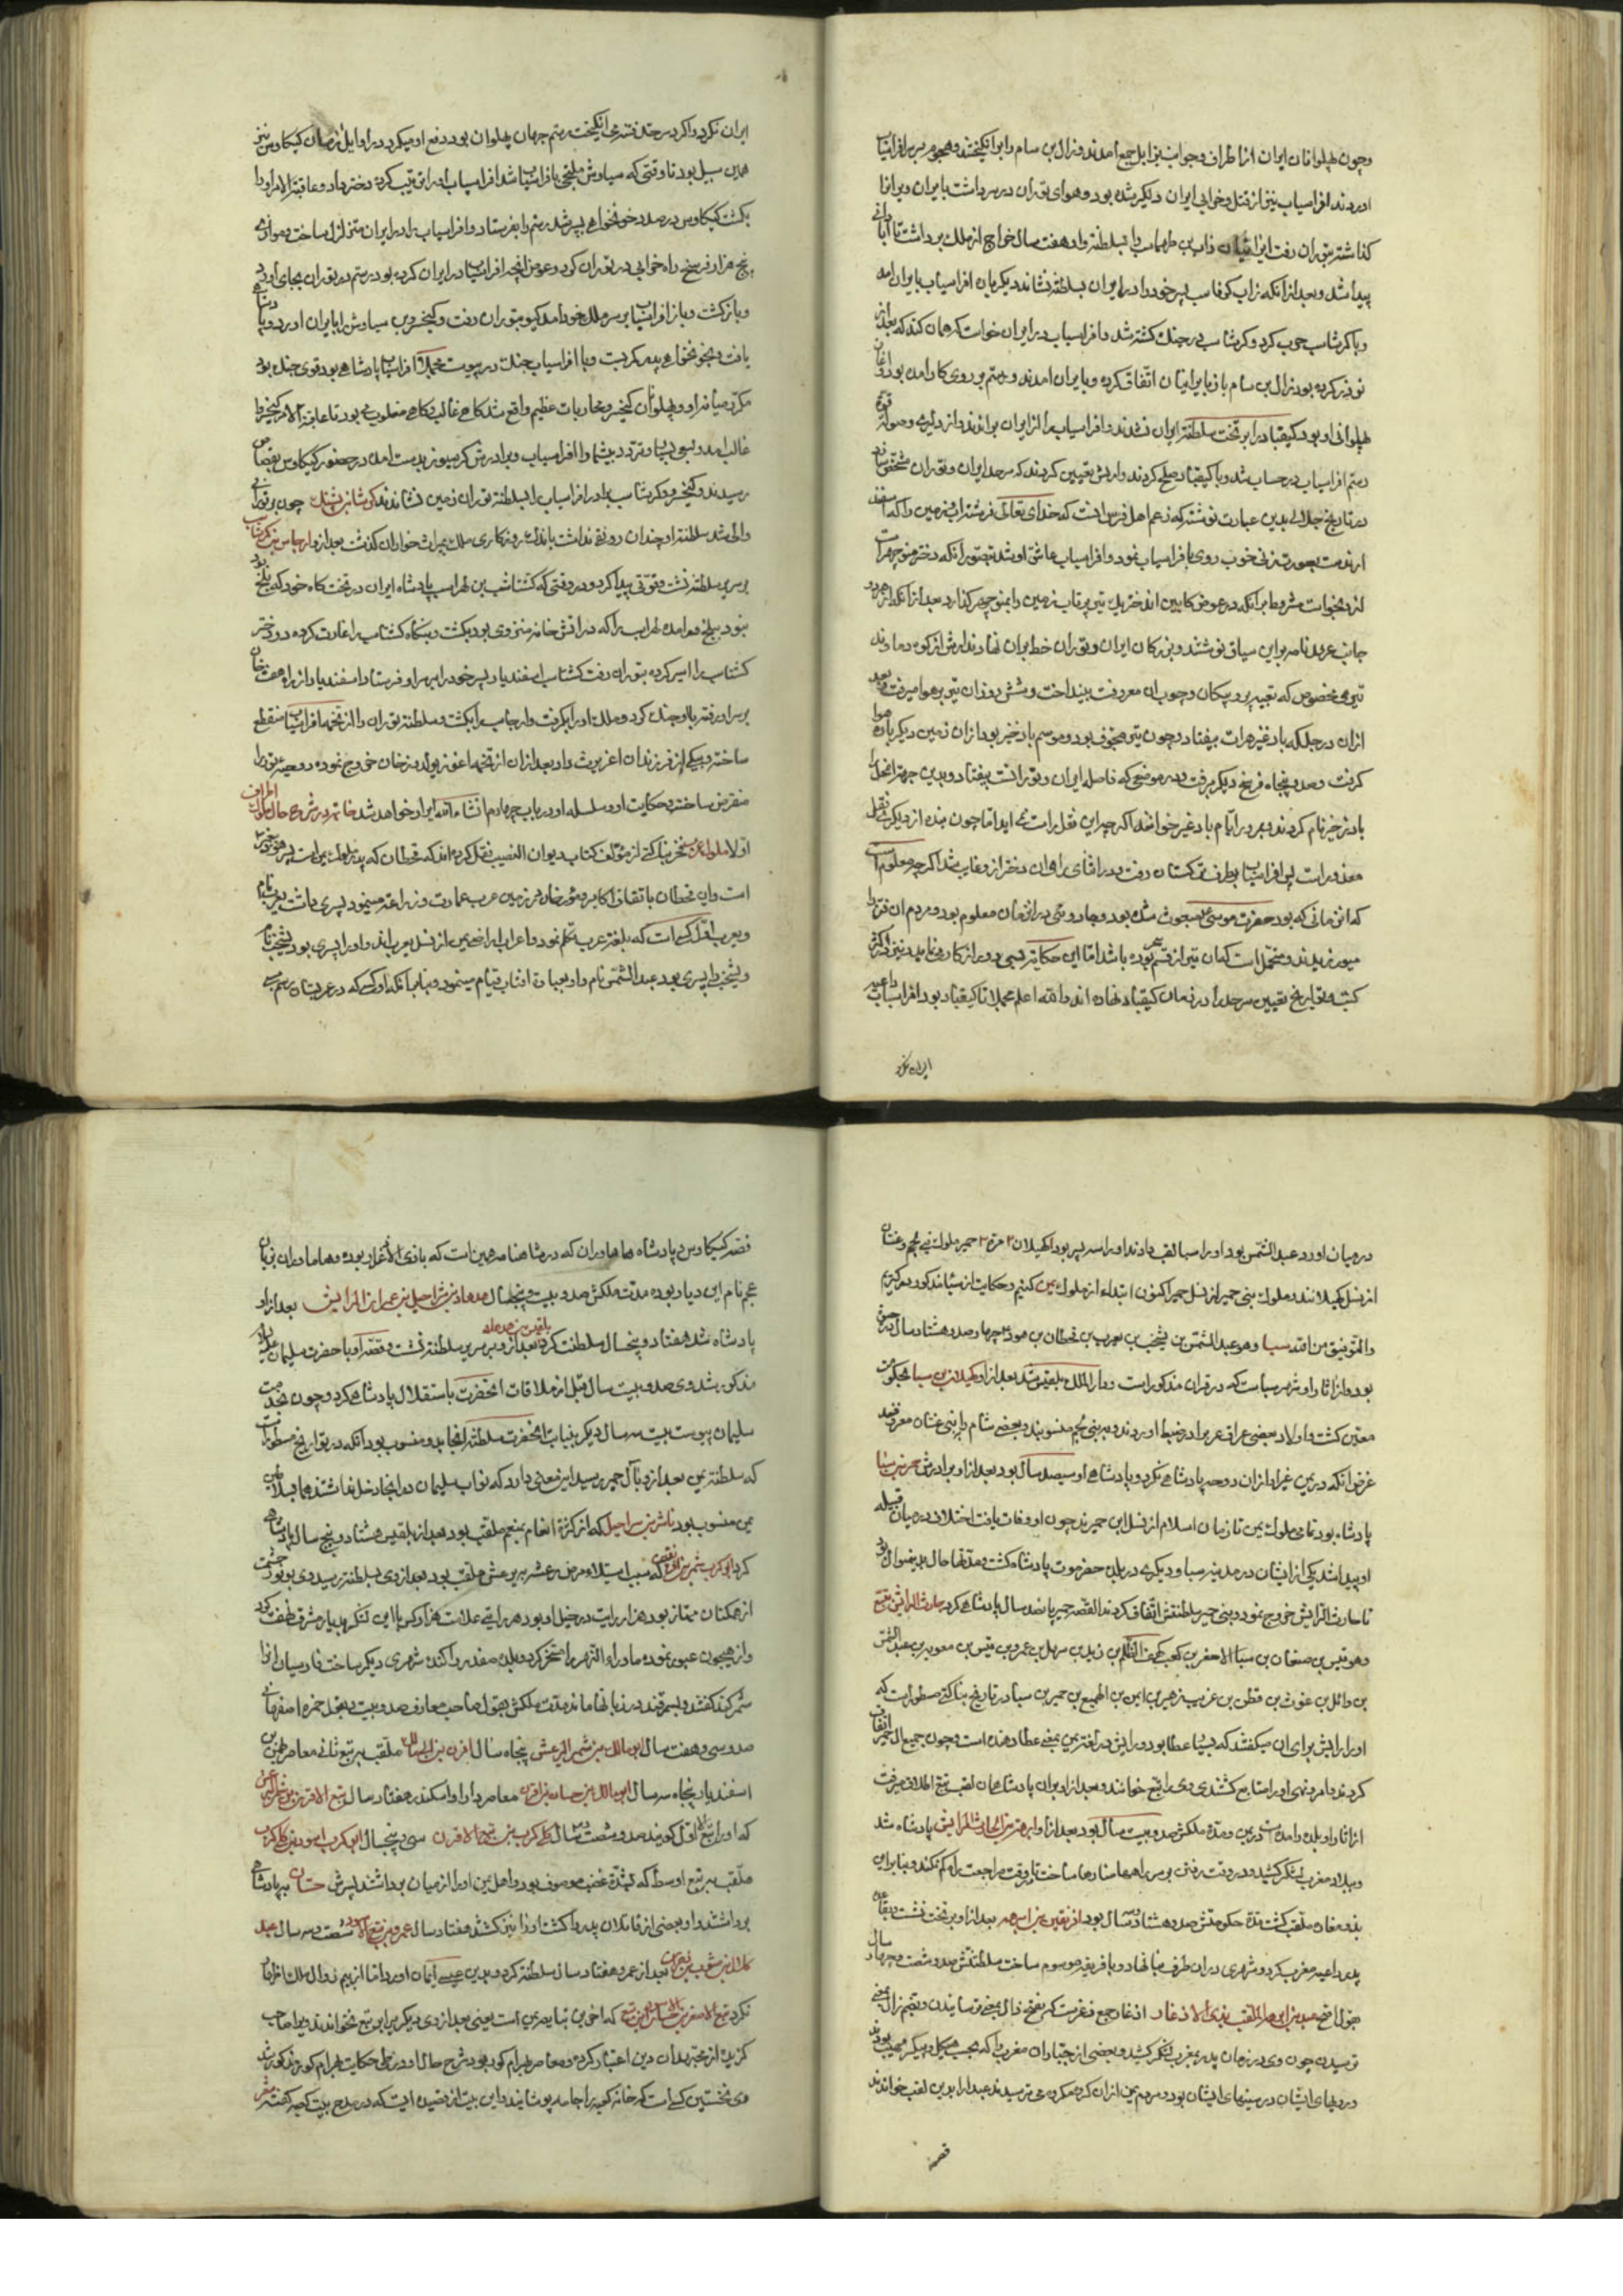 وچون پهلوانان ایران از اطراف وجوانب بزابل جمع امدند وزال بن سام را برانکیختند وهجوم بر سر افراسیاب
اوردند افراسیاب نیز از قتل وخرابی ایران دلکیر شده بود وهوای توران در سر داشت با ایران ویرانرا
کذاشته بتوران رفت ایرانیان زاب بن طهماسب را بسلطنة واو هفت سال خراج از ملک برداشت تا ابادانی
پیدا شد وبعد از انکه زاب کرشاسب پسر خود را در ایران بسلطنة نشاند دیکر بار افراسیاب بایران امد
وبا کرشاسب حرب کرد وکرشاسب در جنک کشته شد وافراسیاب در ایران خواست که همان کند که بعد از
نوذر کرده بود زال بن سام باز با ایرانیان اتفاق کرده وبایران امدند ورستم بر روی کار امده بود واغاز
پهلوانی او بود کیقباد را بر تخت سلطنة ایران نشاندند وافراسیاب را از ایران براندند واز دلیری وصولة
رستم افراسیاب در حساب شد وبا کیقباد صلح کردند وارش تعیین کردند که سرحد ایران وتوران مشخص
در تاریخ جلالی بدین عبارت نوشته که زعم اهل فرس انست که خدای تعالی فرشته زمین را که اسفندارمذ
ارمذست بصورت زنی خوب روی با فراسیاب نمود وافراسیاب عاشق او شد بتصور انکه دختر منوچهر است
از و بخواست مشروط بر انکه در عوض کابین اندختر یک تیر پرتاب زمین را بمنوچهر کذارد بعد از انکه از هر دو
جانب عهدنامه بر این سیاق نوشتند وبزرکان ایران وتوران خط بران نهادند ارش از کوه دماوند
تیری مخصوص که تعبیه پر وپیکان وچوب ان معروفست بینداخت وشش روز ان تیر بر هوا میرفت وبعد
ازان در جلکه بادغیز هرات بیفتاد وچون تیر مجوف بود وموسم بادخیز بود ازان زمین دیکر باره هوا
کرفت وصد وپنجاه فرسخ دیکر برفت ودر موضعی که فاصله ایران وتورانست بیفتاد وبدین جهة انمحل را
بادخیز نام کردند وبمرور ایام بادغیز خواندند اکرچه این نقل راست نمی اید اما چون بنده از دیکری نقل
معذور است پس افراسیاب بطرف ترکستان رفت ودر اثنای راه ان دختر از وغایب شد اکرچه معلوم است
که در زمانی که بود حضرت موسی ع مبعوث شده بود وجادویی در ان زمان معلوم بود ومردم ان فن را
میورزیدند ومحتمل است که ان نیز از قسم سحر بوده باشد اما این حکایة قدیمی ودور از کار می نماید ونیز در اکثر
کتب وتواریخ تعیین سرحد را در زمان کیقباد نهاده اند والله اعلم مجملا تا کیقباد بود افراسیاب داعیه
ایران نکرد
ایران نکرد واکر در حد فتنه می انکیخت رستم جهان پهلوان بود ودفع او میکرد در اوایل زمان کیکاوس نیز
همین سبیل بود تا وقتی که سیاوش ملتجی بافراسیاب شد افراسیاب او را تربیت کرده دختر داد وعاقبة الامر او را
بکشت کیکاوس در صدد خونخواهی پسر شد رستم را بفرستاد وافراسیاب را در ایران متزلزل ساخت وموازی
پنج هزار فرسخ راه خرابی در توران کرد وعوض انچه افراسیاب در ایران کرده بود رستم در توران بجای اورد
وباز کشت وباز افراسیاب بر سر ملک خود امد کیو بتوران رفت وکیخسرو بن سیاوش را بایران اورد وپادشاهی
یافت وبخونخواهی پدر کمر بست وبا افراسیاب جنک در پیوست مجملا افراسیاب پادشاهی بود قوی جنک بود
مکرر میانه او وپهلوانان کیخسرو محاربات عظیم واقع شد کاهی غالب وکاهی مغلوب می بود تا عاقبة الامر کیخسرو را
غالب امد وبسعی بسیار وتردد بیشمار افراسیاب وبرادرش کرسیوز بدست امده در حضور کیکاوس بقصاص
رسیدند وکیخسرو کرشاسب برادر افراسیاب را بسلطنة توران زمین نشاندند کرشاسب پشنک چون بر توران
والی شد سلطنة او چندان رونقی نداشت باندک روزکاری ملک بمیراث خواران کذشت بعد از و ارجاسب بن کرشاسب
بر سریر سلطنة نشست وقوتی پیدا کرد ودر وقتی که کشتاسب بن لهراسب پادشاه ایران در تختکاه خود که بلخ بود
نبود ببلخ درامده لهراسب را که در اتش خانه منزوی بود بکشت وبنکاه کشتاسب را غارت کرده دو دختر
کشتاسب را اسیر کرده بتوران رفت کشتاسب اسفندیار پسر خود را بر سر او فرستاد اسفندیار از راه هفت خان
بر سر او رفته با او جنک کرد وملک او را بکرفت وارجاسب را بکشت وسلطنة توران را از تخمه افراسیاب منقطع
ساخته وبیکی از فرزندان اغریرث داد بعد ازان از تخمه اغوز خان خروج نموده
منقرض ساختند وحکایت او وسلسله او در باب چهارم انشاء الله ایراد خواهد شد خاتمه در شروع حال ملوک اطراف
اولا ملوک یمن فخر بناکتی از مؤلف کتاب دیوان النسب نقل کرده اند که قحطان که پدر ملوک یمن است پسر هود
است واین قحطان باتفاق اکابر ومؤرخان در زمین عرب عمارت وزراعة مینمود پسری داشت یعرب نام
ویعرب اول کسی است که بلغة عرب تکلم نمود واعراب اراضی یمن از نسل یعرب اند واو را پسری بود یشخب نام
ویشخب را پسری بود عبد الشمس نام واو بعبادة افتاب قیام مینمود وبنا بر انکه اول کسی که در عربستان رسم سبی
در میان اورد عبد الشمس بود او را سبا لقب دادند او را سه پسر بود ا کهیلان ۲ مره ۳ حمیر ملوک بنی لخم وغسان
از نسل کهیلانند وملوک بنی حمیر از نسل حمیر اکنون ابتداء از ملوک یمن کنیم وحکایت از سبا مذکور میکردیم
والتوفیق من الله سبا وهو عبد الشمس بن یشخب بن یعرب بن قحطان بن هود چهارصد وهشتاد سال در
بود واز اثار او شهر سباست که در قران مذکور است ودار الملک بلقیس شد بعد از او کهیلان بن سبا بحکومت
معین کشت واولاد بعضی عراق عرب را در ضبط اوردند وببنی لخم منسوبند وبعضی شام را ببنی غسان معروفند
غرض انکه در یمن غیر از ان دوحه پادشاهی نکرد وپادشاهی او سیصد سال بود بعد از او برادرش حمیر بن سبا
پادشاه بود تمامی ملوک یمن تا زمان اسلام از نسل این حمیرند چون او وفات یافت اختلاف در میان قبیله
او پیدا شد یکی از ایشان در مدینه سبا ودیکری در بلده حضرموت پادشاه کشت ومدتها حال بدینمنوال بود
تا حارث الرایش خروج نمود وبنی حمیر بسلطنتش اتفاق کردند القصه حمیر پانصد سال پادشاهی کرد حارث الرایش تبع
وهو قیس بن صنعان بن سبا الاصغر بن کعب کهف الظلم بن زید بن سهل بن عمرو بن قیس بن معویه بن عبد الشمس
بن وائل بن غوث بن قطن بن عریب بن زهیر بن ایمن بن الهمیع بن حمیر بن سبا در تاریخ بناکتی مسطور است که
او را رایش برای ان میکفتند که بسیار عطا بود ورایش در لغة یمن بمعنی عطا دهنده است وچون جمیع ال حمیر اتفاق
کردند وامر ونهی او را متابع کشتند وی را تبع خوانند وبعد از او بران پادشاهان لقب تبع اطلاق میرفت
از اثار او بلده رامده است در یمن ومدة ملکش صد وبیست سال بود بعد از او ابرهه بن الحارث الرایش پادشاه شد
وببلاد مغرب لشکر کشید ودر وقت رفتن بر سر راهها منارها ساخت تا وقت مراجعت راه کم نکند وبنا براین
بذو منار ملقب کشت مدة حکومتش صد وهشتاد وسه سال بود افریقیس بن ابرهه بعد از او بر تخت نشست وبقاعده
پدر داعیه مغرب کرد وشهری در ان طرف بنا نهاد وبافریقیه موسوم ساخت سلطنتش صد وشصت وچهار سال
بقول اصح عبد بن ابرهه الملقب بذی الاذعار اذعار جمع ذعر است که بفتح ذال بمعنی ترسانیدن وبضم ذال بمعنی
ترسیدن چون وی در زمان پدر بمغرب لشکر کشید وبعضی از جباران مغرب را که بحسب هیکل وپیکر مهیب بودند
در دلهای ایشان در سینهای ایشان بود ومردم یمن از ان کروه مکروه می ترسیدند عبد را بدین لقب خواندند
قصه
قصه کیکاوس با پادشاه هاماوران که در شاهنامه همین است که باذی الاذعار بوده وهاماوران بزبان
عجم نام این دیار بوده مدت ملکش صد وبیست وپنجسال هدهاد بن شراحیل بن عمرو بن الرایش بعد از او
پادشاه شد هفتاد وپنجسال سلطنت کرد بلقیس بنت هدهاد بعد از و بر سریر سلطنة نشست وقصه او با حضرت سلیمان علیه
مذکور شد وی صد وبیست سال قبل از ملاقات انحضرت باستقلال پادشاهی کرد وچون بخدمت
سلیمان پیوست بیست وسه سال دیکر بنیابت انحضرت سلطنة انجا بدو منسوب بود انکه در تواریخ مسطور است
که سلطنة یمن بعد از و بآل حمیر رسید این معنی دارد که نواب سلیمان در انجا دخل نداشتند
یمن منسوب بود ناشر بن شراحیل که از کثرة انعام بمنعم ملقب بود بعد از بلقیس هشتاد وپنج سال پادشاهی
کرد ابو کرب شمر بن افریقیس که بسبب استیلاء مرض رعشه برعش ملقب بود بعد از وی بسلطنة رسید وی بوفور حشمت
از همکنان ممتاز بود هزار رایت در خیل او بود وهر رایتی علامت هزار کس با این لشکر بدیار مشرق نهضت کرد
واز جیحون عبور نموده ماوراء النهر را مسخر کرد وبلده صغد را کنده شهری دیکر ساخت فارسیان انرا
شمرکند کفتند وبسمرقند در زبانها ماند مدت ملکش بقول صاحب معارف صد وبیست وبقول حمزه اصفهانی
صد وسی وهفت سال ابو مالک بن شمر الرعش پنجاه سال اقرن بن ابی مالک ملقب به تبع ثانی معاصر بهمن بن
اسفندیار پنجاه وسه سال ابو مالک بن حسان بن اقرن معاصر دارا واسکندر هفتاد سال تبع الاقرن بن شمر یرعش
که او را تبع اول کویند صد وشصت وسه سال کلکیکرب بن تبع الاقرن سی وپنجسال ابو کرب اسعد بن کلکیکرب
ملقب به تبع اوسط که بشدة غضب موصوف بود واهل یمن او را از میان برداشتند پسرش حسان بپادشاهی
برداشتند واو بعضی از قاتلان پدر را کشت او را نیز کشتند هفتاد سال عمرو بن تبع الاسعد شصت وسه سال عبد
کلال بن مثوب بعد از عمرو هفتاد سال سلطنة کرد وبدین عیسی ایمان اورد اما از بیم زوال ملک اظهار
نکرد تبع الاصغر بن حسان بن تبع که اخرین تبایعه یمن است یعنی بعد از وی دیکری را تبع نخواندند وبرا صاحب
کزیده از مجتهدان دین اعتبار کرده ومعاصر بهرام کور بود وشرح حال او در طی حکایت بهرام کور مذکور شد
وی نخستین کسی است که خانه کعبه را جامه پوشانید واین بیت از قصیده ایست که در مدح بیت کعبه کفته شعر